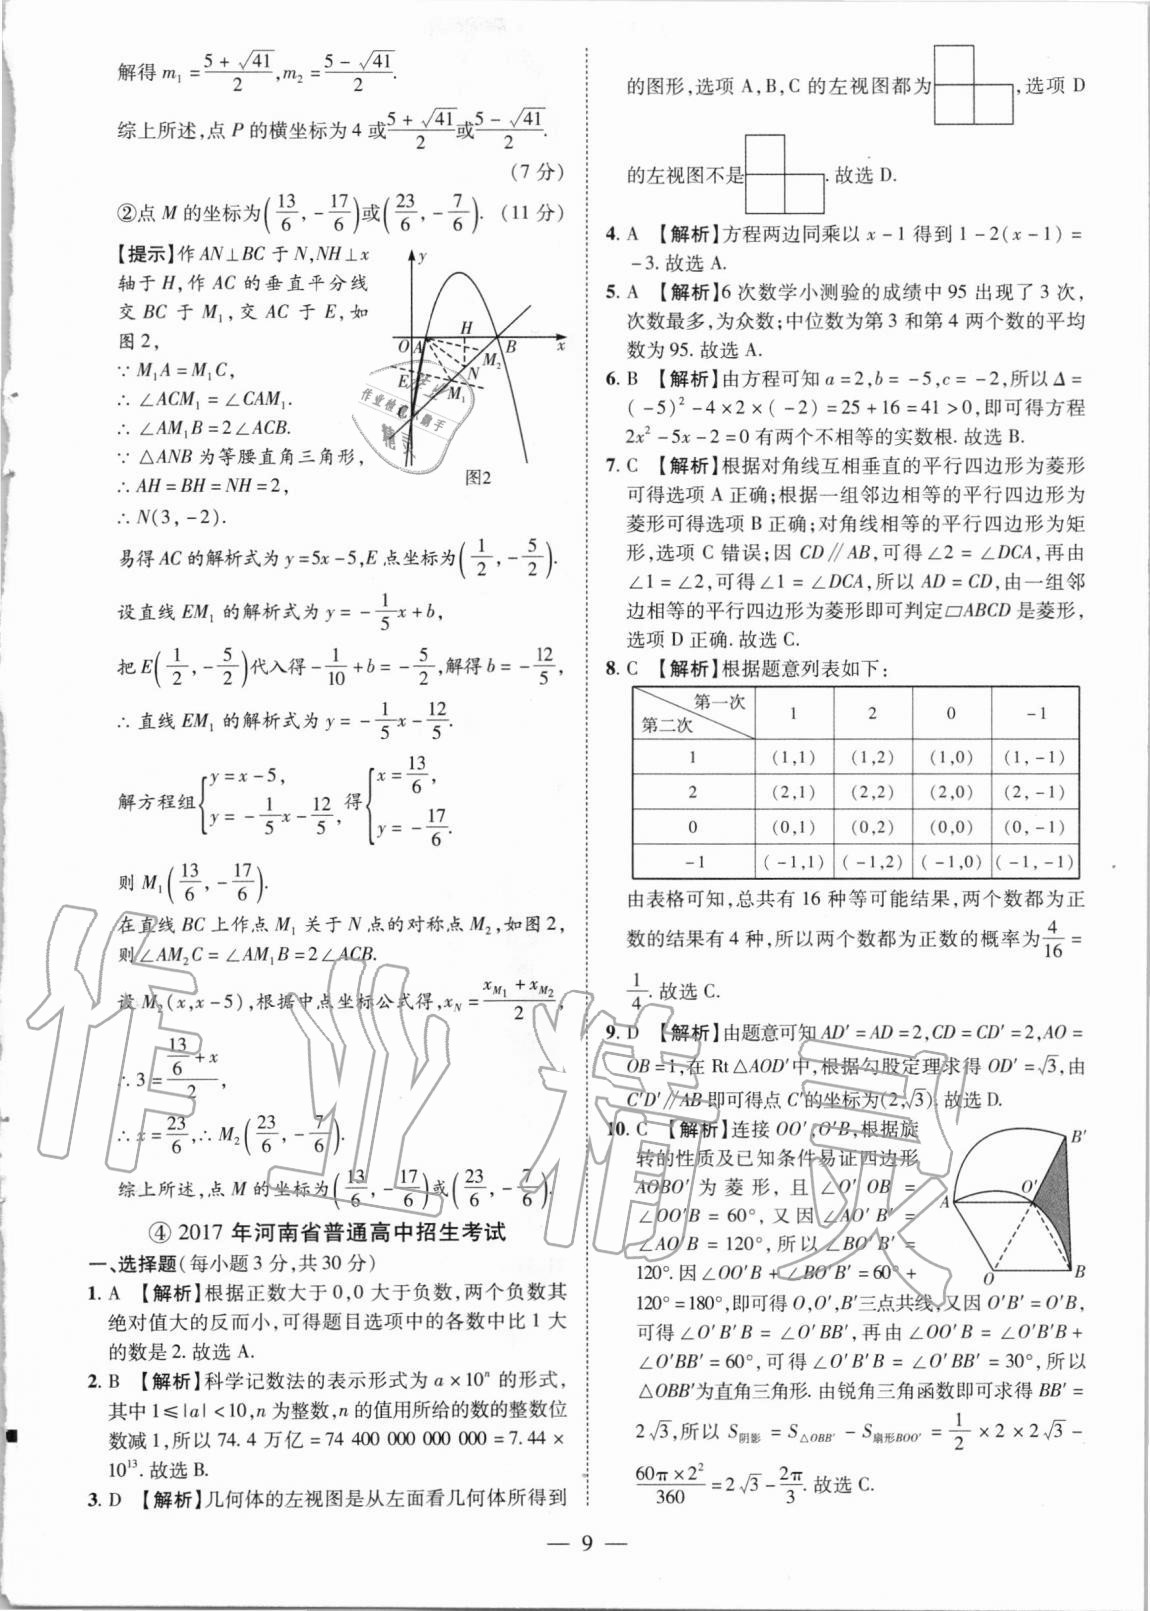 解得 m₁=(5+√41)/2, m₂=(5-√41)/2.
综上所述,点 P 的横坐标为 4 或(5+√41)/2或(5-√41)/2.
(7 分)
②点 M 的坐标为(13/6,-17/6)或(23/6,-7/6). (11 分)
【提示】作AN⊥BC 于 N,NH⊥x
轴于 H,作 AC 的垂直平分线
交 BC 于 M₁,交 AC 于 E,如
图 2,
∵ M₁A=M₁C,
∴ ∠ACM₁=∠CAM₁.
∴ ∠AM₁B=2∠ACB.
∵ △ANB 为等腰直角三角形,
∴ AH=BH=NH=2,
∴ N(3,-2).
y
H
O A B x
M₂
N
E
M₁
图2
易得 AC 的解析式为 y=5x-5,E 点坐标为(1/2,-5/2).
设直线 EM₁ 的解析式为 y=-1/5x+b,
把E(1/2,-5/2)代入得-1/10+b=-5/2,解得b=-12/5,
∴ 直线 EM₁ 的解析式为 y=-1/5x-12/5.
解方程组{y=x-5, y=-1/5x-12/5, 得{x=13/6, y=-17/6.
则 M₁(13/6,-17/6).
在直线 BC 上作点 M₁ 关于 N 点的对称点 M₂,如图 2,
则∠AM₂C=∠AM₁B=2∠ACB.
设 M₂(x,x-5),根据中点坐标公式得,x_N=(x_M₁+x_M₂)/2,
∴ 3=(13/6+x)/2,
∴ x=23/6,∴ M₂(23/6,-7/6).
综上所述,点 M 的坐标为(13/6,-17/6)或(23/6,-7/6).
④ 2017 年河南省普通高中招生考试
一、选择题(每小题 3 分,共 30 分)
1. A 【解析】根据正数大于 0,0 大于负数,两个负数其
绝对值大的反而小,可得题目选项中的各数中比 1 大
的数是 2. 故选 A.
2. B 【解析】科学记数法的表示形式为 a×10ⁿ 的形式,
其中 1≤|a|<10,n 为整数,n 的值用所给的数的整数位
数减 1,所以 74.4 万亿=74 400 000 000 000=7.44×
10¹³. 故选 B.
3. D 【解析】几何体的左视图是从左面看几何体所得到
的图形,选项 A,B,C 的左视图都为 ,选项 D
的左视图不是 . 故选 D.
4. A 【解析】方程两边同乘以 x-1 得到 1-2(x-1)=
-3. 故选 A.
5. A 【解析】6 次数学小测验的成绩中 95 出现了 3 次,
次数最多,为众数;中位数为第 3 和第 4 两个数的平均
数为 95. 故选 A.
6. B 【解析】由方程可知 a=2,b=-5,c=-2,所以 Δ=
(-5)²-4×2×(-2)=25+16=41>0,即可得方程
2x²-5x-2=0 有两个不相等的实数根. 故选 B.
7. C 【解析】根据对角线互相垂直的平行四边形为菱形
可得选项 A 正确;根据一组邻边相等的平行四边形为
菱形可得选项 B 正确;对角线相等的平行四边形为矩
形,选项 C 错误;因 CD∥AB,可得∠2=∠DCA,再由
∠1=∠2,可得∠1=∠DCA,所以 AD=CD,由一组邻
边相等的平行四边形为菱形即可判定▱ABCD 是菱形,
选项 D 正确. 故选 C.
8. C 【解析】根据题意列表如下:
第二次 第一次 1 2 0 -1
1 (1,1) (1,2) (1,0) (1,-1)
2 (2,1) (2,2) (2,0) (2,-1)
0 (0,1) (0,2) (0,0) (0,-1)
-1 (-1,1) (-1,2) (-1,0) (-1,-1)
由表格可知,总共有 16 种等可能结果,两个数都为正
数的结果有 4 种,所以两个数都为正数的概率为4/16=
1/4. 故选 C.
9. D 【解析】由题意可知 AD′=AD=2,CD=CD′=2,AO=
OB=1,在 Rt△AOD′中,根据勾股定理求得 OD′=√3,由
C′D′∥AB 即可得点 C′的坐标为(2,√3). 故选 D.
10. C 【解析】连接 OO′,O′B,根据旋
转的性质及已知条件易证四边形
AOBO′为菱形,且∠O′OB=
∠OO′B=60°,又因∠AO′B′=
∠AO′B=120°,所以∠BO′B′=
120°. 因∠OO′B+∠BO′B′=60°+
120°=180°,即可得 O,O′,B′三点共线,又因 O′B′=O′B,
可得∠O′B′B=∠O′BB′,再由∠OO′B=∠O′B′B+
∠O′BB′=60°,可得∠O′B′B=∠O′BB′=30°,所以
△OBB′为直角三角形. 由锐角三角函数即可求得 BB′=
2√3,所以 S阴影=S△OBB′-S扇形BOO′=1/2×2×2√3-
60π×2²/360=2√3-2π/3. 故选 C.
B′
A O′
O B
— 9 —
作业精灵